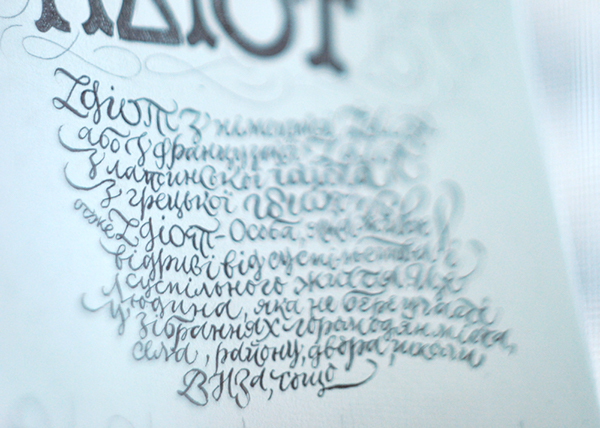 ІДІОТ
Ідіот з німецької
або з французької
з латинської
з грецької
отже Ідіот - Особа, яка живе
відриві від суспільства і
суспільного життя.
людина, яка не бере участі
у зібраннях громадян міста,
села, району, двора, школи
ВНЗа, тощо